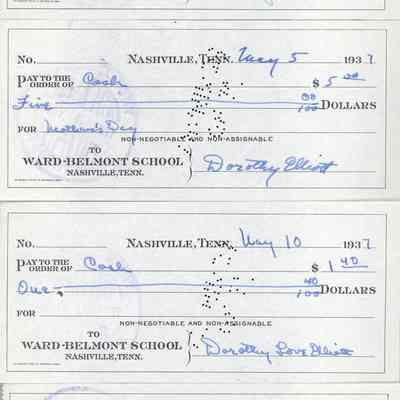 No. NASHVILLE, TENN. May 5 1937
PAY TO THE ORDER OF Cash $ 5 00
Five 00/100 DOLLARS
FOR Mother's Day
NON-NEGOTIABLE AND NON-ASSIGNABLE
TO
WARD-BELMONT SCHOOL
NASHVILLE, TENN.
Dorothy Elliott
No. NASHVILLE, TENN. May 10 1937
PAY TO THE ORDER OF Cash $ 1 40
One 40/100 DOLLARS
FOR
NON-NEGOTIABLE AND NON-ASSIGNABLE
TO
WARD-BELMONT SCHOOL
NASHVILLE, TENN.
Dorothy Love Elliott